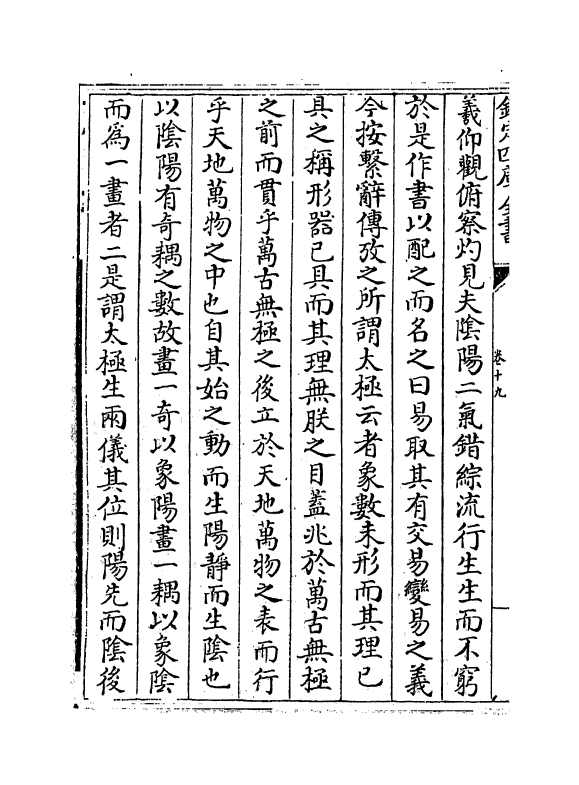 欽定四庫全書
卷十九
羲仰觀俯察灼見夫陰陽二氣錯綜流行生生而不窮
於是作書以配之而名之曰易取其有交易變易之義
今按繫辭傳攷之所謂太極云者象數未形而其理已
具之稱形器已具而其理無朕之目蓋兆於萬古無極
之前而貫乎萬古無極之後立於天地萬物之表而行
乎天地萬物之中也自其始之動而生陽靜而生陰也
以陰陽有奇耦之數故畫一奇以象陽畫一耦以象陰
而為一畫者二是謂太極生兩儀其位則陽先而陰後